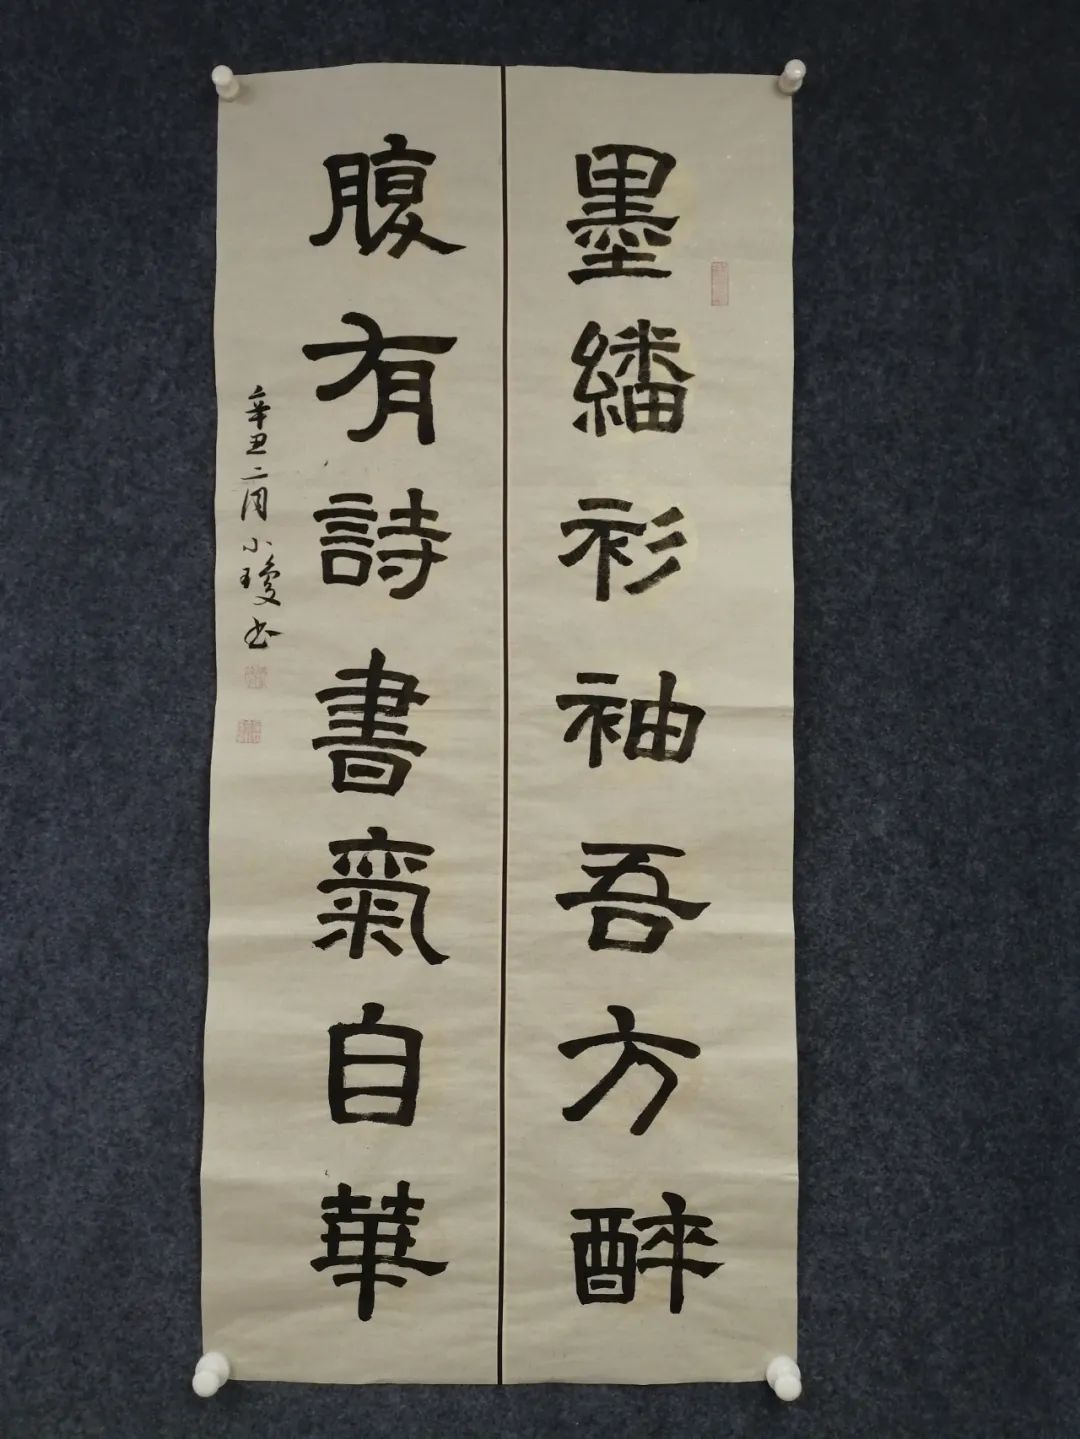 墨繙衫袖吾方醉
腹有詩書氣自華
辛丑二月小瓊书